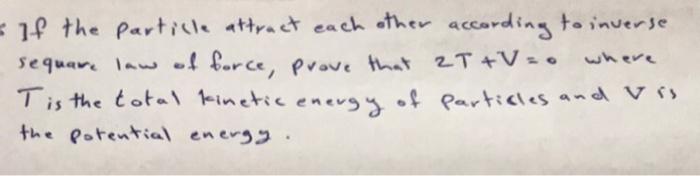 : If the particle attract each other according to inverse
sequare law of force, prove that 2T+V=0 where
T is the total kinetic energy of particles and V is
the potential energy.